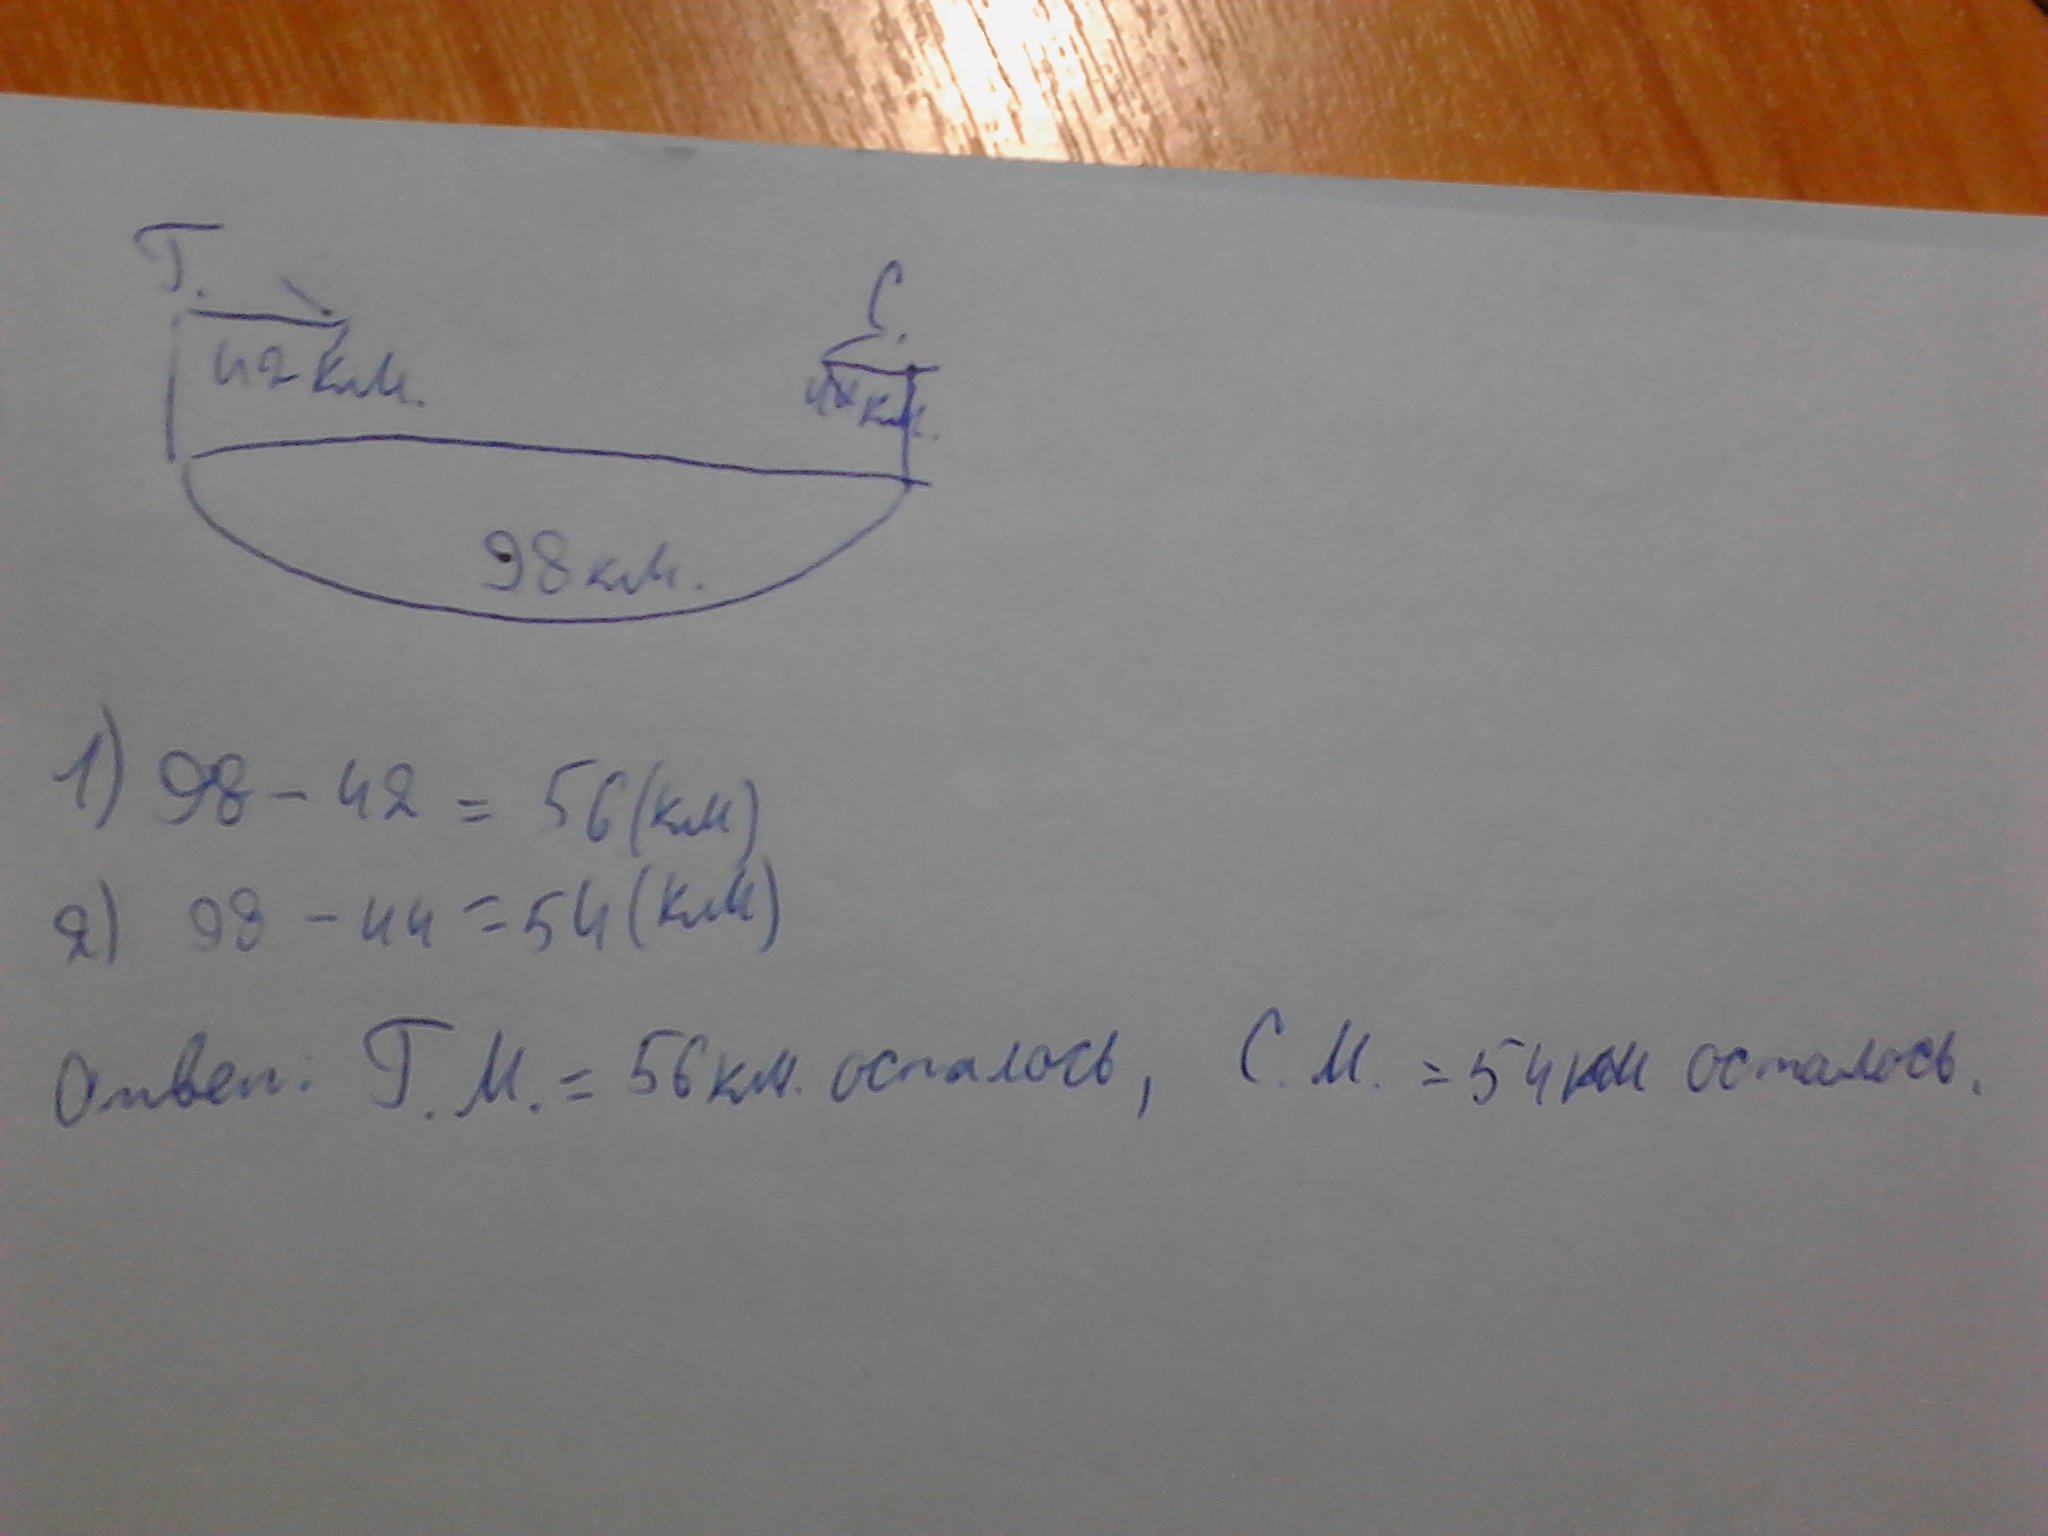 Г. С.
42 км. 44 км.
98 км.
1) 98 - 42 = 56 (км)
2) 98 - 44 = 54 (км)
Ответ: Г. М. = 56 км. осталось, С. М. = 54 км осталось.